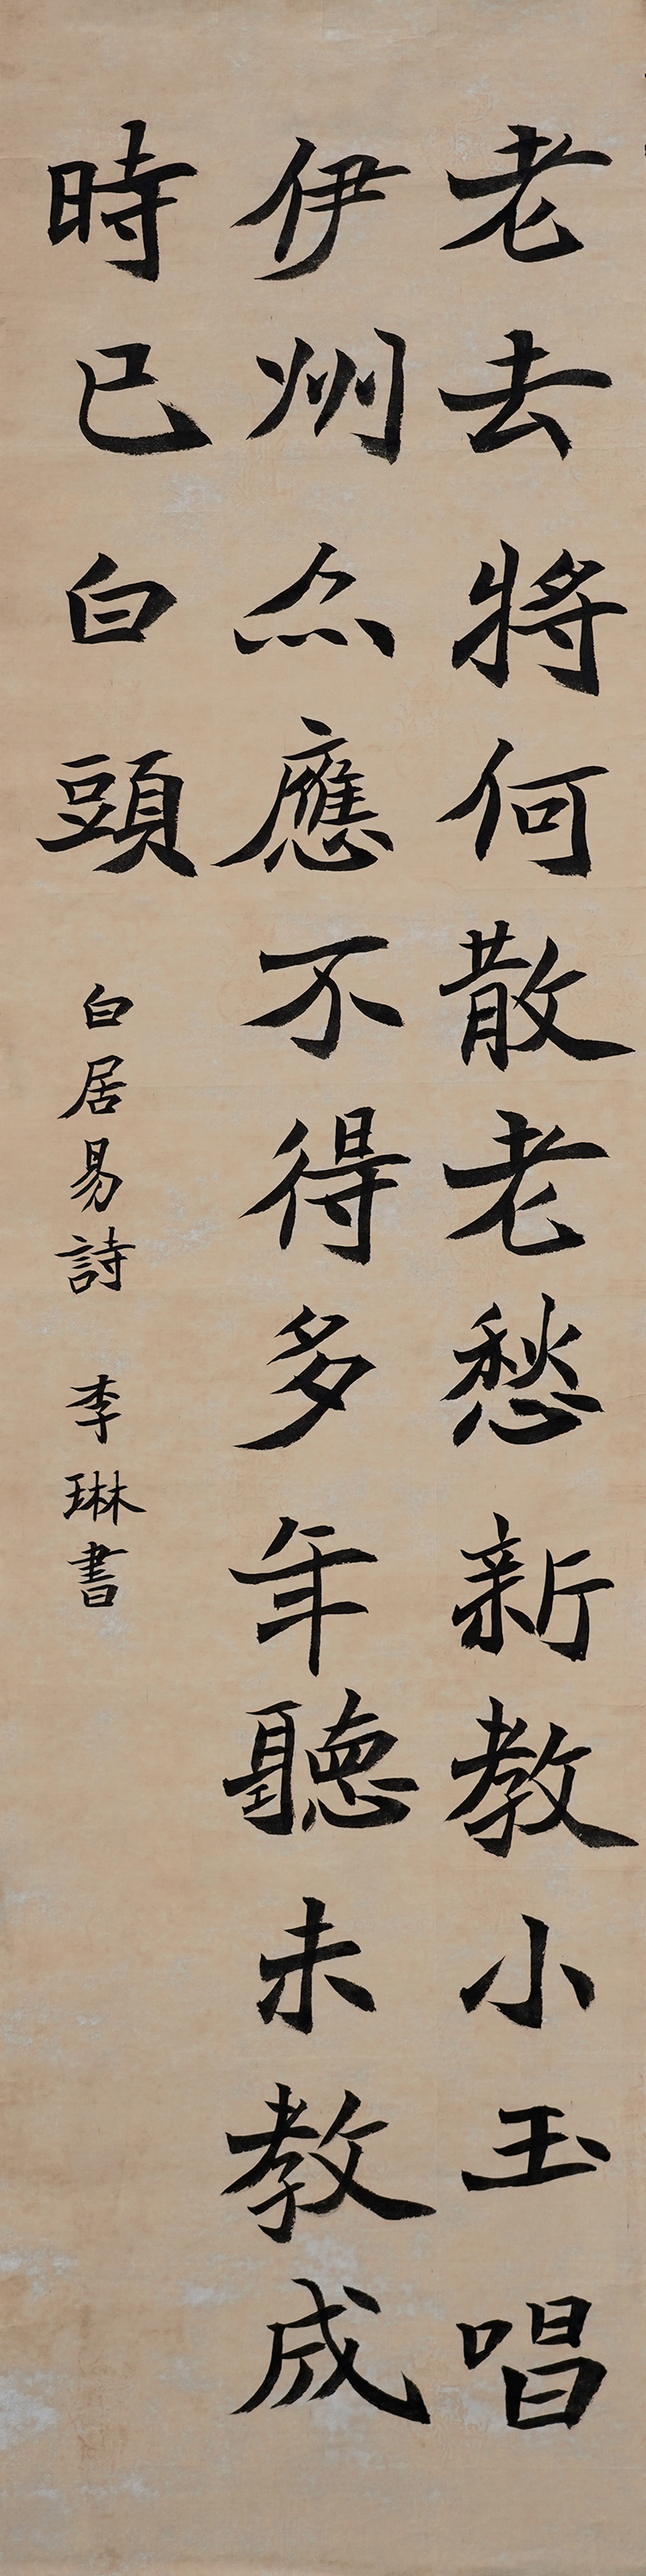 老去將何散老愁新教小玉唱
伊州亦應不得多年聽未教成
時已白頭
白居易詩 李琳書